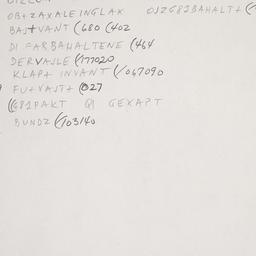 OB+ZAXALEINGLAX
BAS+VANT (680 (402
DI FARBAHALTENE (464
DERVASLE (177020
KLAP+ INVANT (/067090
FU+VAST+ (027
((681PAKT QI GEXAPT
BUNDZ (/103140